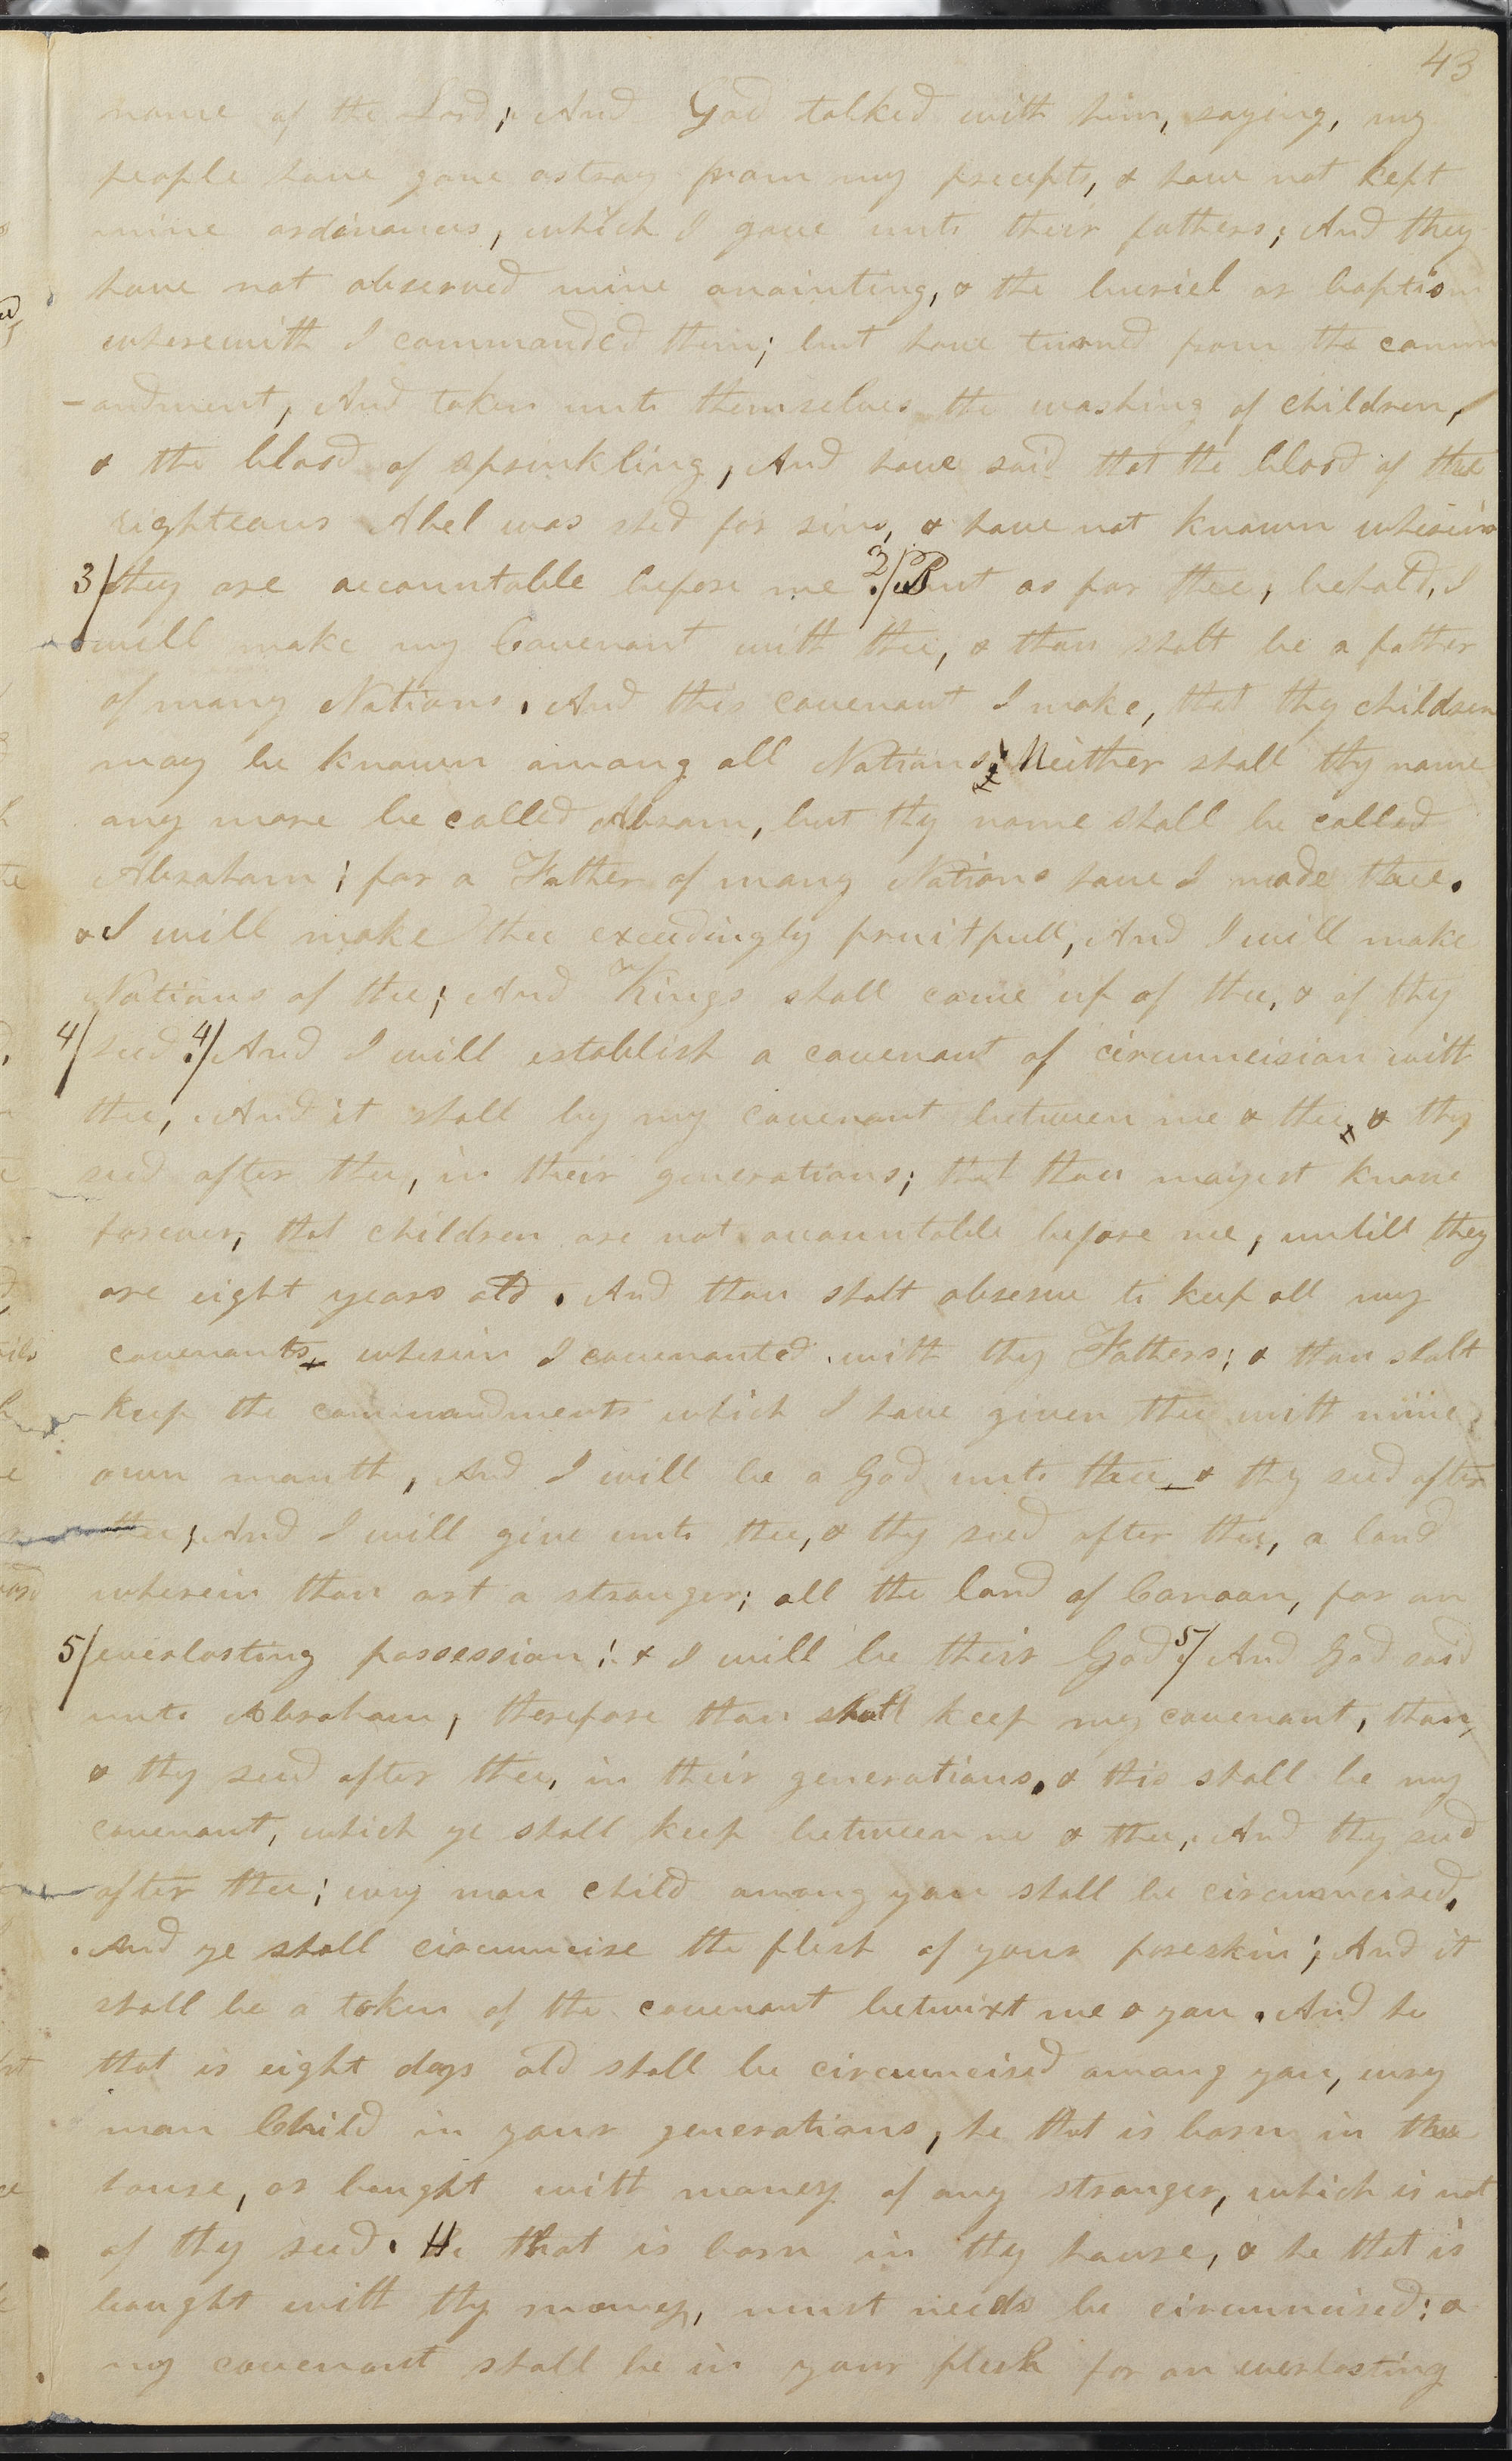 43
name of the Lord; And God talked with him, saying, my
people have gone astray from my precepts, & have not kept
mine ordinances, which I gave unto their fathers; And they
have not observed mine anointing, & the buriel or baptism
wherewith I commanded them; but have turned from the comm
-andment, And taken unto themselves the washing of children,
& the blood of sprinkling, And have said that the blood of the
righteous Abel was shed for sins, & have not known wherein
3/ they are accountable before me. 3/ But as for thee, behold, I
will make my Covenant with thee, & thou shalt be a father
of many Nations. And this covenant I make, that thy children
may be known among all Nations; Neither shall thy name
any more be called Abram, but thy name shall be called
Abraham; for a Father of many Nations have I made thee.
& I will make thee exceedingly fruitfull, And I will make
Nations of thee; And Kings shall come up of thee, & of thy
4/ seed. 4/ And I will establish a covenant of circumcision with
thee, And it shall by my covenant between me & thee & thy
seed after thee, in their generations; that thou mayest know
forever, that children are not accountable before me, untill they
are eight years old. And thou shalt observe to keep all my
covenants wherein I covenanted with thy Fathers; & thou shalt
keep the commandments which I have given thee with mine
own mouth, And I will be a God unto thee & thy seed after
thee; And I will give unto thee, & thy seed after thee, a land
wherein thou art a stranger; all the land of Canaan, for an
5/ everlasting possession; & I will be their God. 5/ And God said
unto Abraham, therefore thou shalt keep my covenant, thou,
& thy seed after thee, in their generations. & this shall be my
covenant, which ye shall keep between me & thee, And thy seed
after thee; evry man child among you shall be circumcised.
And ye shall circumcise the flesh of your foreskin; And it
shall be a token of the covenant betwixt me & you. And he
that is eight days old shall be circumcised among you, evry
man Child in your generations, he that is born in the
house, or bought with money of any stranger, which is not
of thy seed. He that is born in thy house, & he that is
bought with thy money, must needs be circumcised: &
my covenant shall be in your flesh for an everlasting